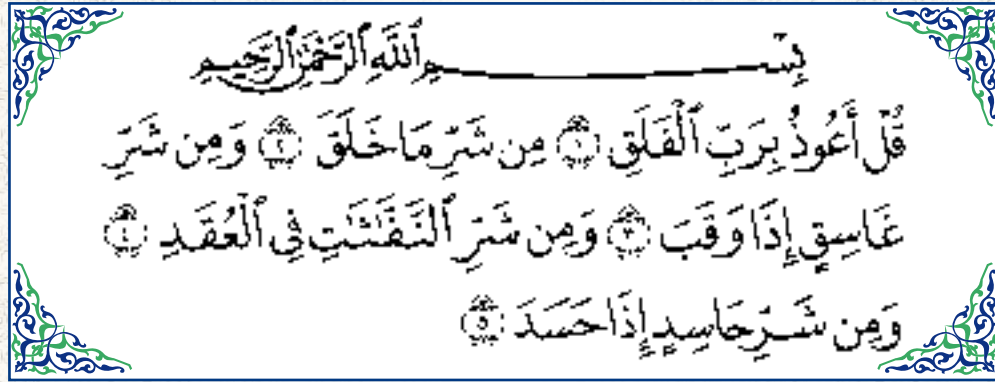 بِسْمِ ٱللَّهِ ٱلرَّحْمَٰنِ ٱلرَّحِيمِ
قُلْ أَعُوذُ بِرَبِّ ٱلْفَلَقِ ١ مِن شَرِّ مَا خَلَقَ ٢ وَمِن شَرِّ
غَاسِقٍ إِذَا وَقَبَ ٣ وَمِن شَرِّ ٱلنَّفَّٰثَٰتِ فِى ٱلْعُقَدِ ٤
وَمِن شَرِّ حَاسِدٍ إِذَا حَسَدَ ٥